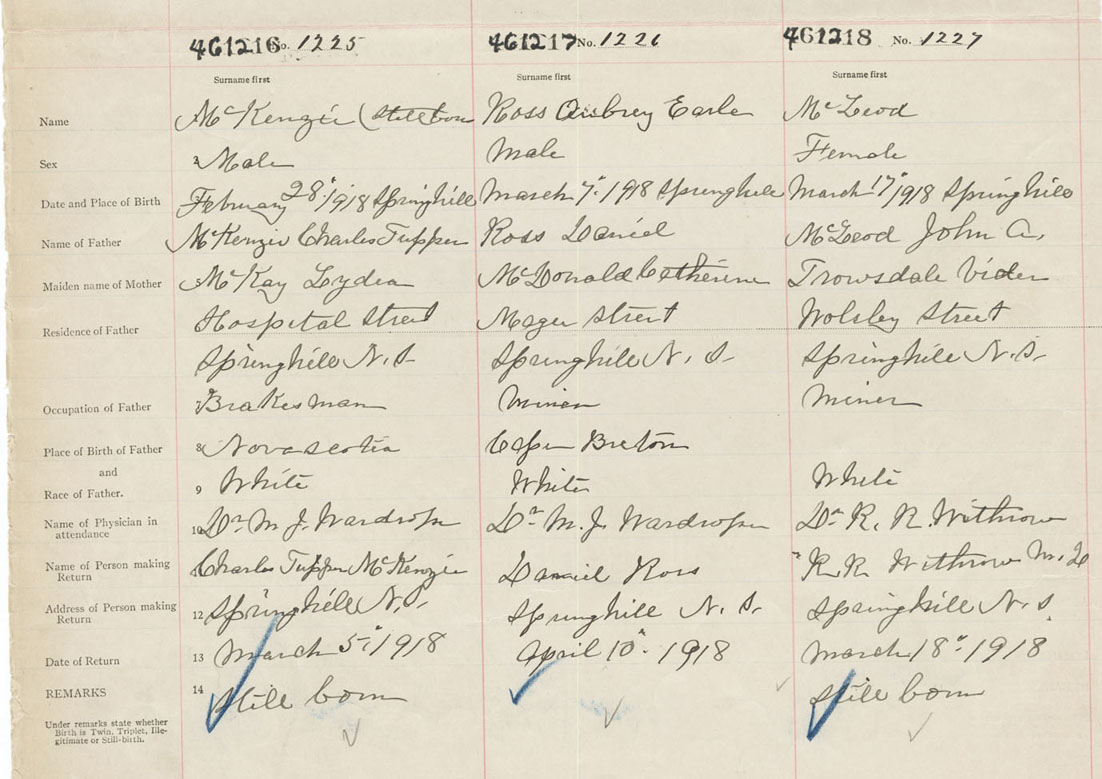 461216 No. 1225 461217 No. 1226 461218 No. 1227
Surname first Surname first Surname first
Name McKenzie (Still born Ross Aubrey Earle McLeod
Sex 2 Male Male Female
Date and Place of Birth February 28" 1918 Springhill March 7" 1918 Springhill March 17" 1918 Springhill
Name of Father McKenzie Charles Tupper Ross Daniel McLeod John A.
Maiden name of Mother McKay Lydia McDonald Catherine Trowsdale
Residence of Father Hospital Street Street Wolsley Street
Springhill N.S. Springhill N.S. Springhill N.S.
Occupation of Father 7 Brakesman Miner Miner
Place of Birth of Father 8 Novascotia Cape Breton
and
Race of Father. 9 White White White
Name of Physician in
attendance 10 Dr M J. Wardrope Dr M. J. Wardrope Dr R. R. Withrow
Name of Person making
Return Charles Tupper McKenzie Daniel Ross R R Withrow M.D
Address of Person making
Return 12 Springhill N.S. Springhill N.S. Springhill N.S
Date of Return 13 March 5" 1918 April 10" 1918 March 18" 1918
REMARKS 14 Still born Still born
Under remarks state whether
Birth is Twin, Triplet, Ille-
gitimate or Still-birth.